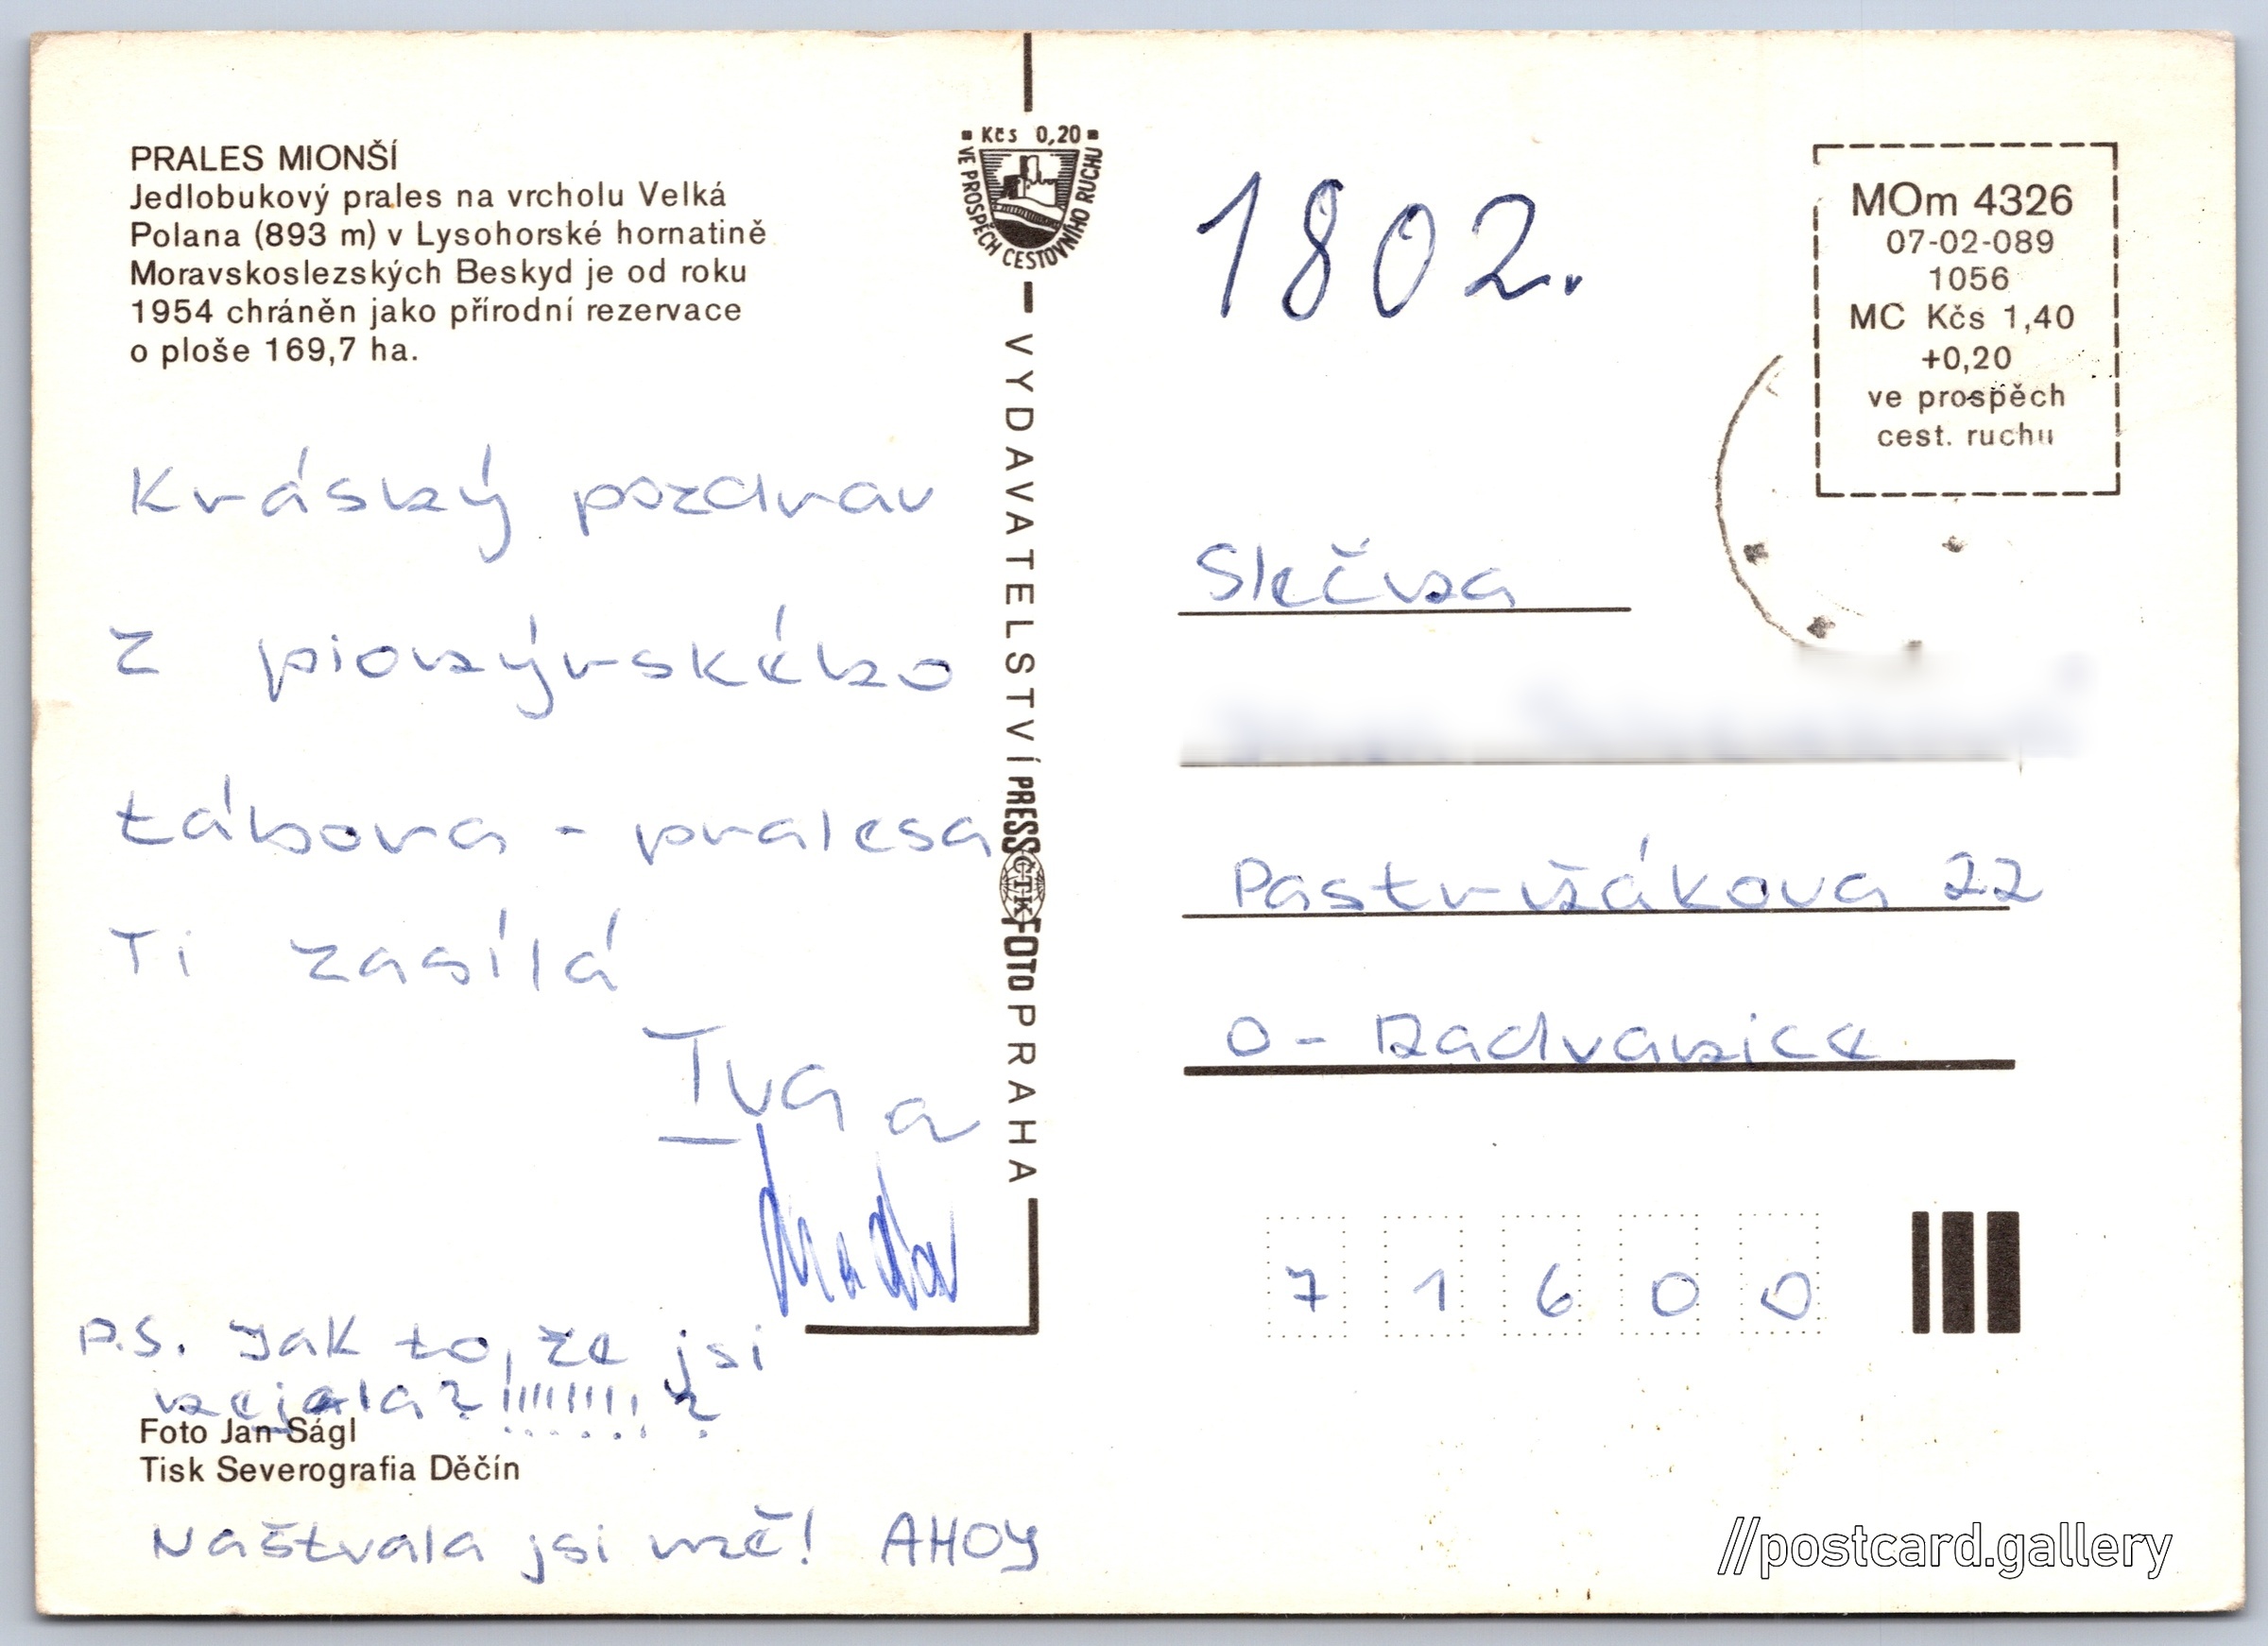 PRALES MIONŠÍ
Jedlobukový prales na vrcholu Velká
Polana (893 m) v Lysohorské hornatině
Moravskoslezských Beskyd je od roku
1954 chráněn jako přírodní rezervace
o ploše 169,7 ha.
Krásný pozdrav
z pionýrského
tábora - pralesa
Ti zasílá
Iva a
P.S. Jak to, že jsi
nejela? !!!!!!!! ?
Foto Jan Ságl
Tisk Severografia Děčín
Naštvala jsi mě! AHOY
Kčs 0,20
VE PROSPĚCH CESTOVNÍHO RUCHU
VYDAVATELSTVÍ PRESSFOTO PRAHA
ČTK
1802.
MOm 4326
07-02-089
1056
MC Kčs 1,40
+0,20
ve prospěch
cest. ruchu
Slečna
Pastrňákova 22
O - Radvanice
71600
//postcard.gallery